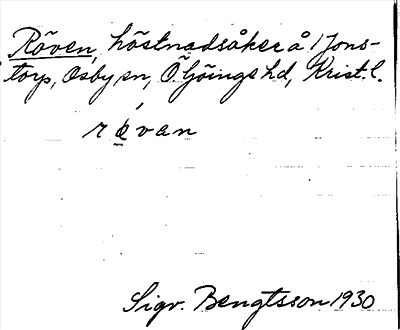 Röven, höstnadsåker å 1 Jons-
torp, Osby sn, Ö. Göinge hd, Krist. l.
rövan
Sigv. Bengtsson 1930